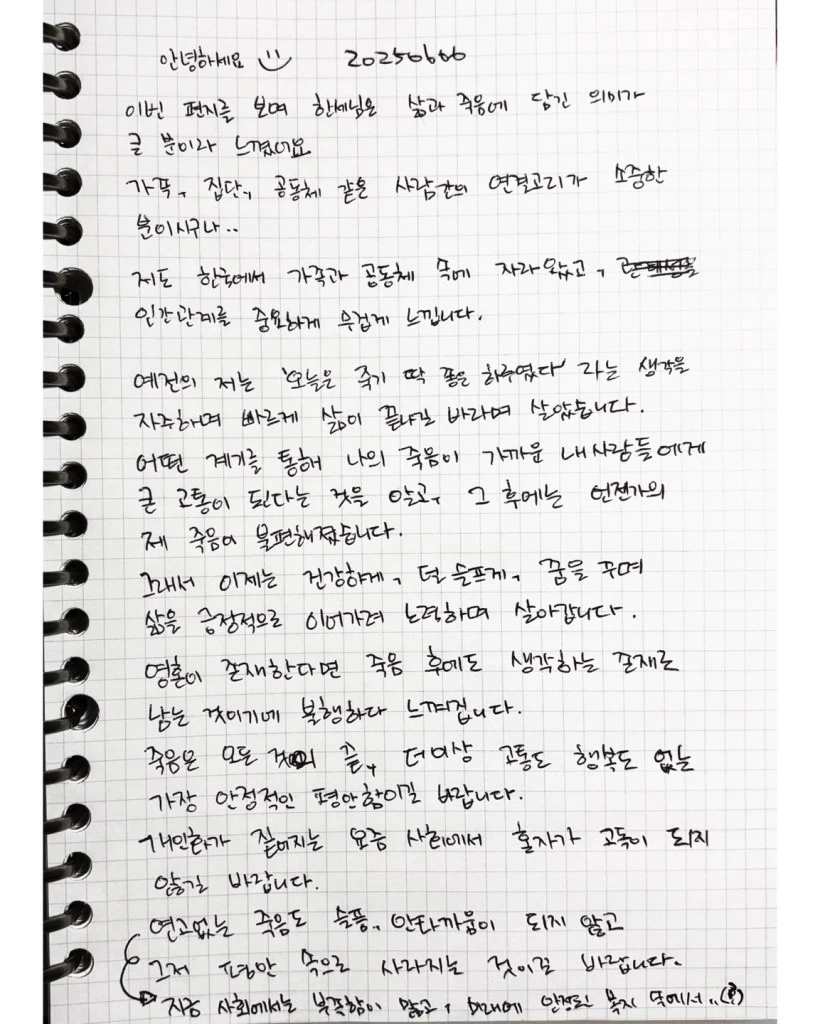 안녕하세요 20250606
이번 편지를 보며 한세님은 삶과 죽음에 담긴 의미가
클 분이라 느꼈어요
가족, 집단, 공동체 같은 사람간의 연결고리가 소중한
분이시구나..
저도 한국에서 가족과 공동체 속에 자라왔고,
인간관계를 중요하게 무겁게 느낍니다.
예전의 저는 '오늘은 죽기 딱 좋은 하루였다' 라는 생각을
자주하며 빠르게 삶이 끝나길 바라며 살았습니다.
어떤 계기를 통해 나의 죽음이 가까운 내사람들에게
큰 고통이 된다는 것을 알고, 그 후에는 언젠가의
제 죽음이 불편해졌습니다.
그래서 이제는 건강하게, 덜 슬프게, 꿈을 꾸며
삶을 긍정적으로 이어가려 노력하며 살아갑니다.
영혼이 존재한다면 죽음 후에도 생각하는 존재로
남는 것이기에 불행하다 느껴집니다.
죽음은 모든 것의 끝, 더이상 고통도 행복도 없는
가장 안정적인 평안함이길 바랍니다.
개인화가 짙어지는 요즘 사회에서 혼자가 고독이 되지
않길 바랍니다.
연고없는 죽음도 슬픔, 안타까움이 되지 않고
그저 평안 속으로 사라지는 것이길 바랍니다.
지금 사회에서는 부족함이 많고, 미래에 안정된 복지 속에서..(?)